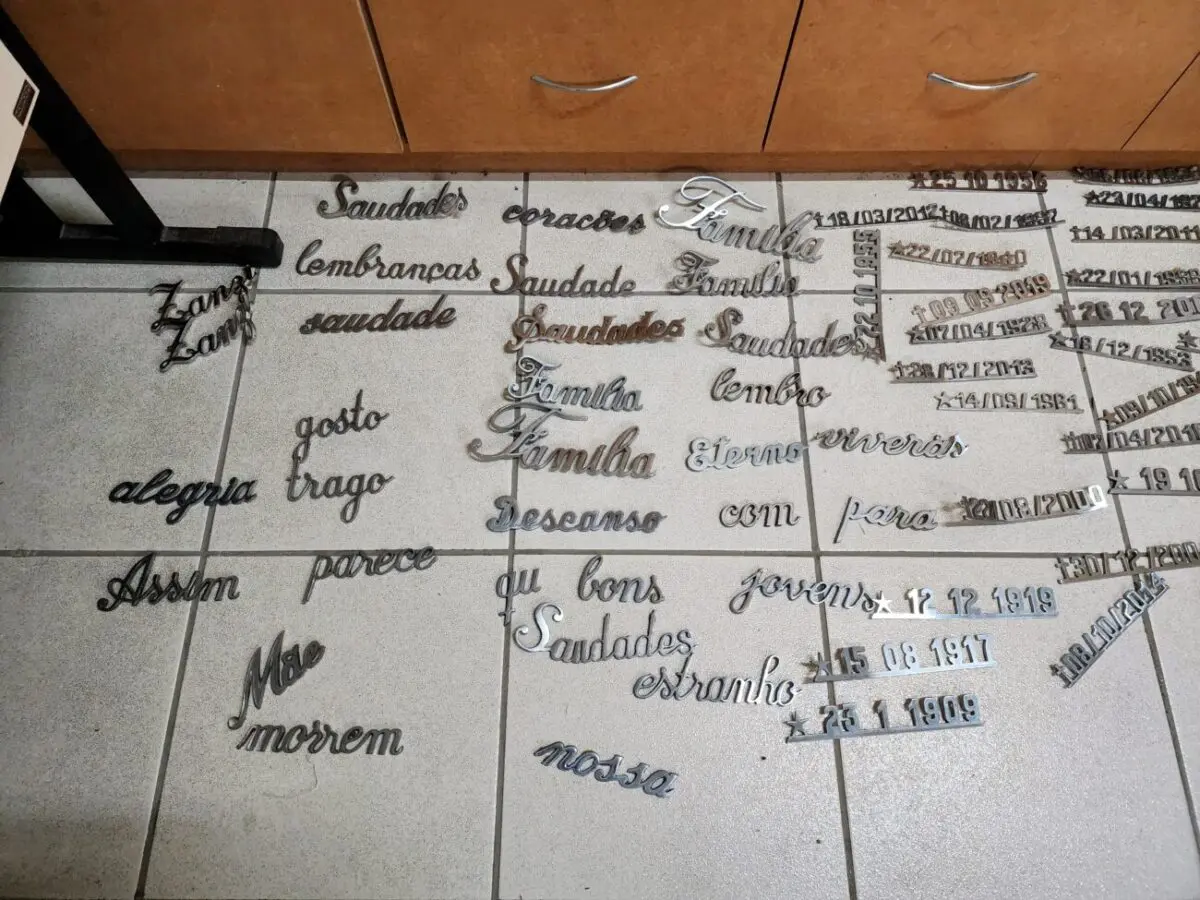 Saudades
coracões
Família
lembranças
Saudade
Família
Zanz
Zanz
saudade
Saudades
Saudades
Família
lembro
gosto
Família
Eterno
viverás
alegria
trago
Descanso
com
para
Assim
parece
qu
bons
jovens
Saudades
Mãe
estranho
morrem
nossa
★25 10 1956
†18/03/2012
†08/02/1997
★23/04/192
†14/03/2011
★22/07/1940
★22 10 1955
★22/01/1958
†09 09 2019
★26 12 200
★07/04/1928
★18/12/1953
†28/12/2013
★14/09/1981
★09/10/19
†07/04/2018
★ 19 10
†21/08/2000
†30/12/200
★ 12 12 1919
†08/10/2014
★15 08 1917
★ 23 1 1909